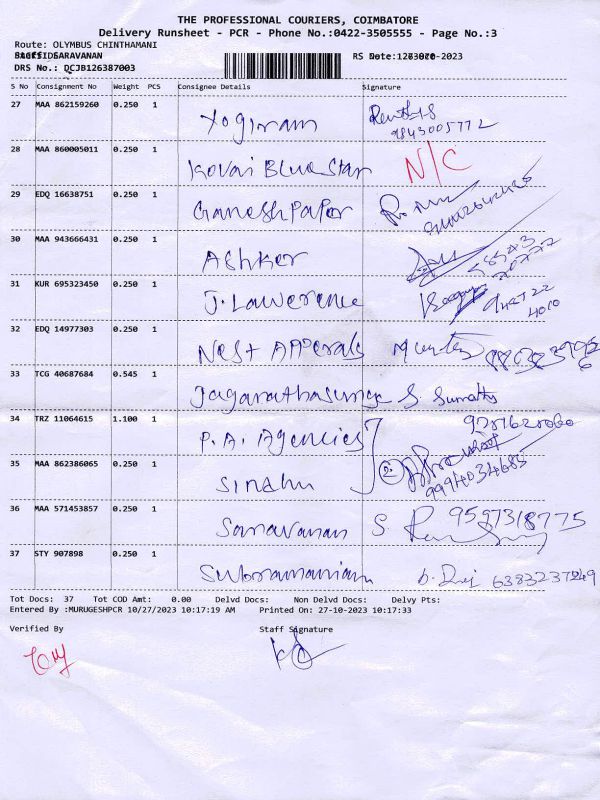 THE PROFESSIONAL COURIERS, COIMBATORE
Delivery Runsheet - PCR - Phone No.:0422-3505555 - Page No.:3
Route: OLYMBUS CHINTHAMANI
SARAVANAN RS -2023
DRS No.: DCJB126387003
S No Consignment No Weight PCS Consignee Details Signature
27 MAA 862159260 0.250 1 Yogiram 9843005772
28 MAA 860005011 0.250 1 Kovai Blue Star N/C
29 EDQ 16638751 0.250 1 Ganesh Paper
30 MAA 943666431 0.250 1 Ashker
31 KUR 695323450 0.250 1 J. Lawerence
32 EDQ 14977303 0.250 1 Nest Apperals
33 TCG 40687684 0.545 1 S. Sumathy
34 TRZ 11064615 1.100 1 P.A. Agencies
35 MAA 862386065 0.250 1 Sindhu 9994034685
36 MAA 571453857 0.250 1 Saravanan S 9597318775
37 STY 907898 0.250 1 Subramaniam 6383237249
Tot Docs: 37 Tot COD Amt: 0.00 Delvd Docs: Non Delvd Docs: Delvy Pts:
Entered By :MURUGESHPCR 10/27/2023 10:17:19 AM Printed On: 27-10-2023 10:17:33
Verified By Staff Signature